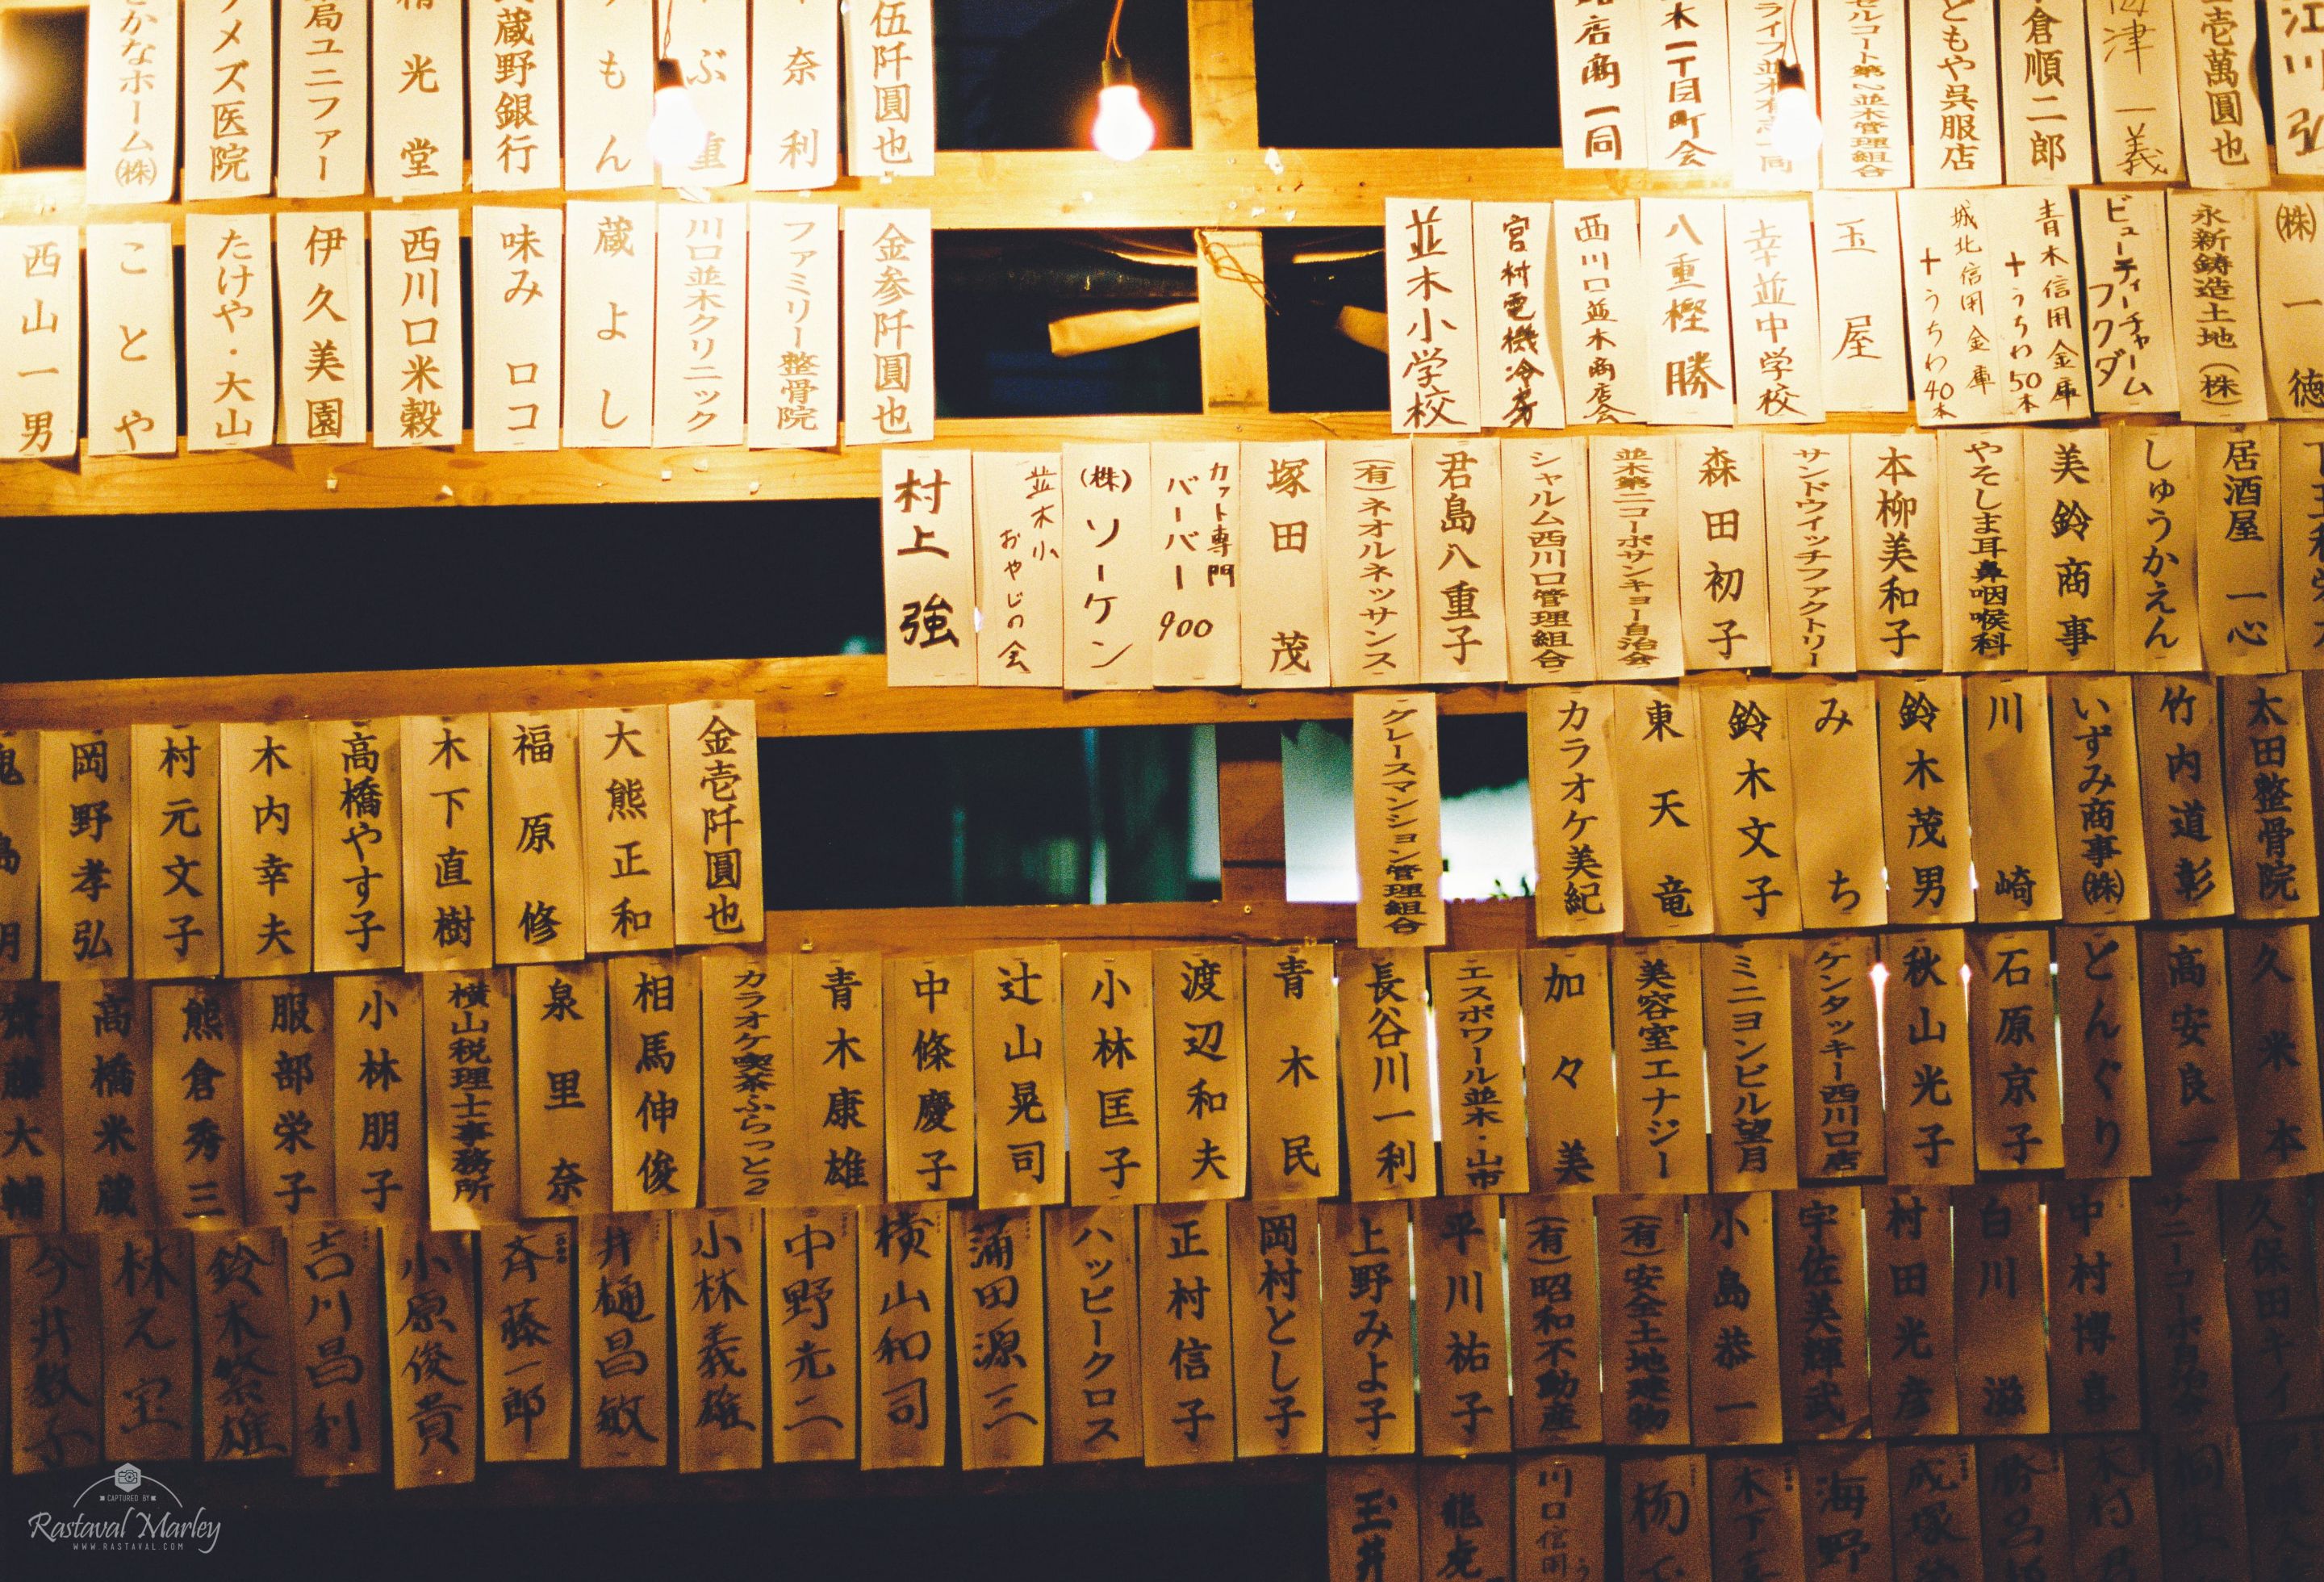 伍阡圓也
奈利
もん
蔵野銀行
光堂
局ユニファー
メズ医院
かなホーム㈱
江川
壱萬圓也
津一義
倉順二郎
ともや呉服店
セルコート第2並木管理組合
木一丁目町会
店商一同
金参阡圓也
ファミリー整骨院
川口並木クリニック
蔵よし
味みロコ
西川口米穀
伊久美園
たけや・大山
ことや
西山一男
㈱一徳
永新鋳造土地(株)
ビューティーチャーム
フクダ
青木信用金庫
十うちわ50本
城北信用金庫
十うちわ40本
玉屋
幸並中学校
八重樫勝
西川口並木商店会
宮村電機冷房
並木小学校
居酒屋一心
しゅうかえん
美鈴商事
やそしま耳鼻咽喉科
本柳美和子
サンドウイッチファクトリー
森田初子
並木第二コーポサンキョー自治会
シャルム西川口管理組合
君島八重子
(有)ネオルネッサンス
塚田茂
カット専門
バーバー900
(株)ソーケン
並木小
おやじの会
村上強
金壱阡圓也
大熊正和
福原修
木下直樹
高橋やす子
木内幸夫
村元文子
岡野孝弘
太田整骨院
竹内道彰
いずみ商事㈱
川崎
鈴木茂男
みち
鈴木文子
東天竜
カラオケ美紀
グレースマンション管理組合
久米本
高安良一
どんぐり
石原京子
秋山光子
ケンタッキー西川口店
ミニヨンビル望月
美容室エナジー
加々美
エスポワール並木・山市
長谷川一利
青木民
渡辺和夫
小林匡子
辻山晃司
中條慶子
青木康雄
カラオケ喫茶ふらっと2
相馬伸俊
泉里奈
横山税理士事務所
小林朋子
服部栄子
熊倉秀三
高橋米蔵
齋藤大輔
久保田キイ
サニーコーポ自治会
中村博喜
白川滋
村田光彦
宇佐美輝武
小島恭一
(有)安全土地建物
(有)昭和不動産
平川祐子
上野みよ子
岡村とし子
正村信子
ハッピークロス
蒲田源三
横山和司
中野光二
小林義雄
井樋昌敏
斉藤一郎
小原俊貴
吉川昌利
鈴木繁雄
林え宝
今井教子
木村
成塚
海野
木下
杨
川口信用
龍虎
玉井
CAPTURED BY
Rastaval Marley
WWW.RASTAVAL.COM